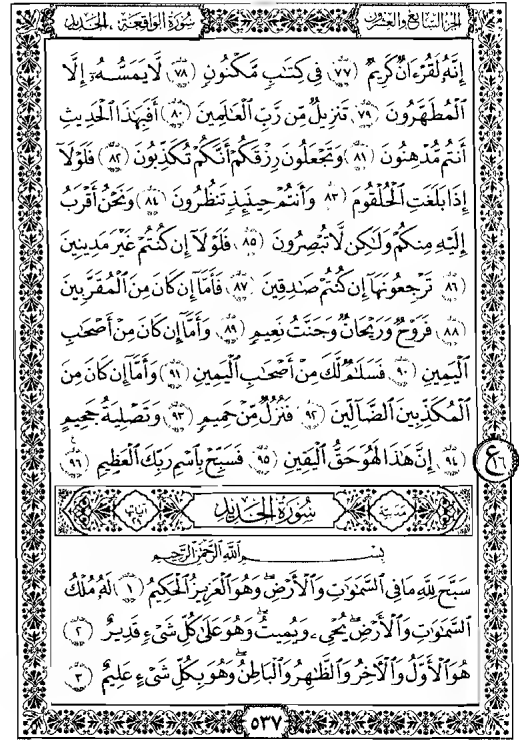 الجزء السابع والعشرون سُورَةُ الوَاقِعَة ، الحَدِيد
إِنَّهُۥ لَقُرْءَانٌ كَرِيمٌ ﴿٧٧﴾ فِى كِتَٰبٍ مَّكْنُونٍ ﴿٧٨﴾ لَّا يَمَسُّهُۥٓ إِلَّا
ٱلْمُطَهَّرُونَ ﴿٧٩﴾ تَنزِيلٌ مِّن رَّبِّ ٱلْعَٰلَمِينَ ﴿٨٠﴾ أَفَبِهَٰذَا ٱلْحَدِيثِ
أَنتُم مُّدْهِنُونَ ﴿٨١﴾ وَتَجْعَلُونَ رِزْقَكُمْ أَنَّكُمْ تُكَذِّبُونَ ﴿٨٢﴾ فَلَوْلَآ
إِذَا بَلَغَتِ ٱلْحُلْقُومَ ﴿٨٣﴾ وَأَنتُمْ حِينَئِذٍ تَنظُرُونَ ﴿٨٤﴾ وَنَحْنُ أَقْرَبُ
إِلَيْهِ مِنكُمْ وَلَٰكِن لَّا تُبْصِرُونَ ﴿٨٥﴾ فَلَوْلَآ إِن كُنتُمْ غَيْرَ مَدِينِينَ
﴿٨٦﴾ تَرْجِعُونَهَآ إِن كُنتُمْ صَٰدِقِينَ ﴿٨٧﴾ فَأَمَّآ إِن كَانَ مِنَ ٱلْمُقَرَّبِينَ
﴿٨٨﴾ فَرَوْحٌ وَرَيْحَانٌ وَجَنَّتُ نَعِيمٍ ﴿٨٩﴾ وَأَمَّآ إِن كَانَ مِنْ أَصْحَٰبِ
ٱلْيَمِينِ ﴿٩٠﴾ فَسَلَٰمٌ لَّكَ مِنْ أَصْحَٰبِ ٱلْيَمِينِ ﴿٩١﴾ وَأَمَّآ إِن كَانَ مِنَ
ٱلْمُكَذِّبِينَ ٱلضَّآلِّينَ ﴿٩٢﴾ فَنُزُلٌ مِّنْ حَمِيمٍ ﴿٩٣﴾ وَتَصْلِيَةُ جَحِيمٍ
﴿٩٤﴾ إِنَّ هَٰذَا لَهُوَ حَقُّ ٱلْيَقِينِ ﴿٩٥﴾ فَسَبِّحْ بِٱسْمِ رَبِّكَ ٱلْعَظِيمِ ﴿٩٦﴾
ع ١٦
مدنية سُورَةُ الحَدِيدِ آياتها ٢٩
بِسْمِ ٱللَّهِ ٱلرَّحْمَٰنِ ٱلرَّحِيمِ
سَبَّحَ لِلَّهِ مَا فِى ٱلسَّمَٰوَٰتِ وَٱلْأَرْضِ ۖ وَهُوَ ٱلْعَزِيزُ ٱلْحَكِيمُ ﴿١﴾ لَهُۥ مُلْكُ
ٱلسَّمَٰوَٰتِ وَٱلْأَرْضِ ۖ يُحْىِۦ وَيُمِيتُ ۖ وَهُوَ عَلَىٰ كُلِّ شَىْءٍ قَدِيرٌ ﴿٢﴾
هُوَ ٱلْأَوَّلُ وَٱلْءَاخِرُ وَٱلظَّٰهِرُ وَٱلْبَاطِنُ ۖ وَهُوَ بِكُلِّ شَىْءٍ عَلِيمٌ ﴿٣﴾
٥٣٧